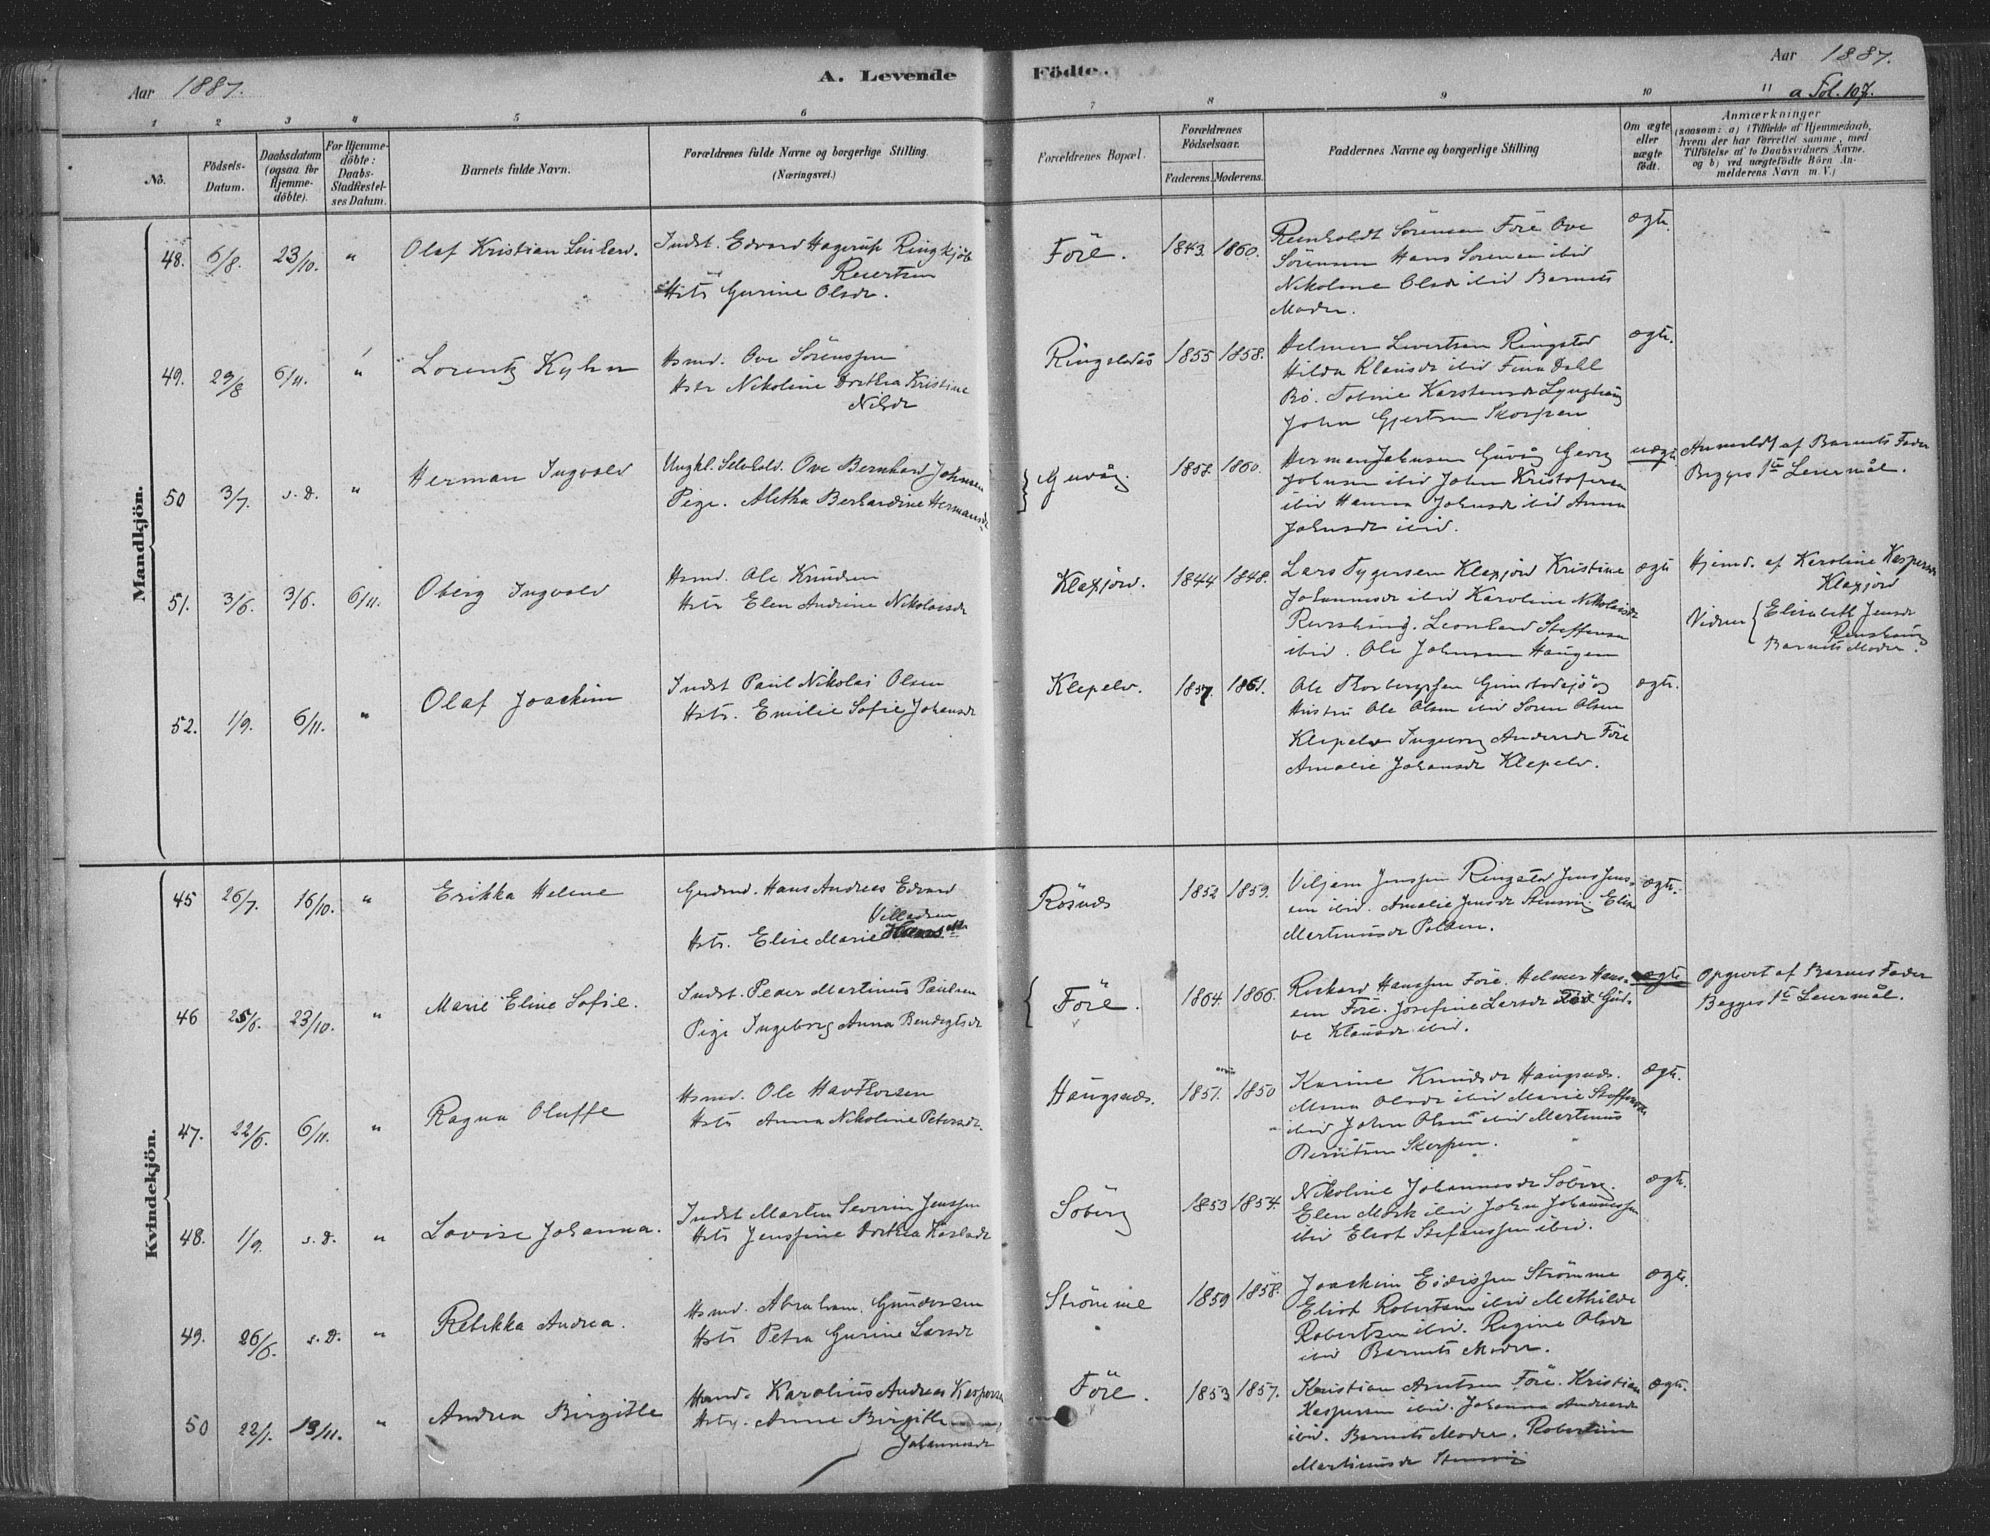 Aar 1887.
A. Levende
Födte.
Aar 1887.
a Fol. 107.
1 2 3 4 5 6 7 8 9 10 11
No.
Födsels-
Datum.
Daabsdatum
(ogsaa for
Hjemme-
döbte).
For Hjemme-
döbte:
Daabs-
Stadfæstel-
ses Datum.
Barnets fulde Navn.
Forældrenes fulde Navne og borgerlige Stilling.
(Næringsvei.)
Forældrenes Bopæl.
Forældrenes
Födselsaar.
Faderens. Moderens.
Faddernes Navne og borgerlige Stilling
Om ægte
eller
uægte
födt.
Anmærkninger
(saasom: a) i Tilfælde af Hjemmedaab,
hvem der har forrettet samme, med
Tilföielse af to Daabsvidners Navne,
og b) ved uægtefödte Börn An-
melderens Navn m. V.)
Mandkjön.
48. 6/8. 23/10. "
Olaf Kristian
Indst. Edvard Hagerup Ringkjöb
Hstr Gurine Olsdr.
Före. 1843. 1860.
Reinholdt Sörensen Före Ove
Sörensen Hans Sörensen ibid
Nikoline Olsdr ibid Barnets
Moder.
ægte.
49. 29/8 6/11. "
Lorentz Kyhn
Hsmd. Ove Sörenssen
Hstr Nikoline Dorthea Kristine
Nilsdr
1855 1858.
Helmer Sivertsen Ringstad
Hilda Klausdr ibid Fina Dall
Bö. Karstensdr
John Gjertsen Skorpen
ægte.
50 3/7. s.d. "
Herman Ingvald
Ungkl. Selvhold. Ove Bernhard Johnsen
Pige. Aletha Berhardine Hermansdr
Guvåg. 1857. 1860.
Herman Johnsen Guvåg Georg
Johnsen ibid John Kristofersen
ibid Hanna Johnsdr ibid Anna
Johnsdr ibid.
uægte.
Anmeldt af Barnets Fader
Begges 1ste Leiermål.
51. 3/6. 3/6. 6/11.
Oberg Ingvald
Hsmd. Ole Knudsen
Hstr Elen Andrine Nikolaisdr
Klaxjord. 1844 1848.
Lars Tygersen Klaxjord Kristine
Johannesdr ibid Karoline Nikolaisdr
Leonhard Steffensen
ibid. Ole Johnsen Haugen
ægte
Hjemd. af Karoline Kaspersdr
Klaxjord
Vidner { Elisabeth Jensdr
Barnets Moder.
52. 1/9. 6/11. "
Olaf Joachim
Indst Paul Nikolai Olsen
Hstr. Emilie Sofie Johansdr
Klepelv. 1857. 1861.
Ole Thorbergssen og
Hustru Ole Olsen ibid Sören Olsen
Klepelv Ingeborg Andersdr Före
Amalie Johansdr Klepelv.
ægte.
Kvindekjön.
45 26/7. 16/10. "
Erikka Helene
Gudmd. Hans Andreas Edvard
Villadsen
Hstr. Elise Marie Hansdtr
Rösnæs 1852 1859.
Viljam Jenssen Ringstad Jens Jens-
sen ibid. Amalie Jensdr Stensvig Elise
Martinusdr Polden.
ægte.
46 25/6. 23/10. "
Marie Eline Sofie.
Indst. Peder Martinus Paulsen
Pige Ingeborg Anna Bendigtsdr
Före. 1864. 1866.
Rickard Hanssen Före. Helmer Hans-
sen Före. Josefine Larsdr ibid Gud-
be Klausdr ibid.
uægte
Opgivet af Barnets Fader
Begges 1ste Leiermål.
47. 22/6. 6/11. "
Ragna Oluffe
Hsmd. Ole Havthorsen
Hstr Anna Nikoline Petersdr.
Haugsnæs. 1851. 1850
Karine Knudsdr Haugsnæs.
Mina Olsdr ibid Marie Steffensdr
ibid John Olsen ibid Martinus
Berntsen Skorpen.
ægte.
48. 1/9. s.d. "
Lovise Johanna.
Indst Martin Severin Jenssen
Hstr Jensfine Dorthea Karlsdr
Söberg 1853 1854.
Nikoline Johannesdr Söberg.
Elen Mork ibid John Johannessen
ibid Eliot Stefanssen ibid.
ægte.
49. 26/6. s.d. "
Rebekka Andrea.
Hsmd. Abraham Gundersen
Hstr Petra Gurine Larsdr
Strömme 1859 1858.
Joachim Eidissen Strömme
Eliot Robertsen ibid Mathilde
Robertsen ibid. Regine Olsdr
ibid Barnets Moder.
ægte.
50 22/1. 13/11. "
Andrea Birgitte
Karolius Andreas Kaspersen
Hstr. Anne Birgitte
Johannesdr
Före. 1853 1857.
Kristian Arntsen Före. Kristian
Kaspersen ibid. Johanna Andersdr
ibid. Barnets Moder.
Martinusdr Stensvig
ægte.